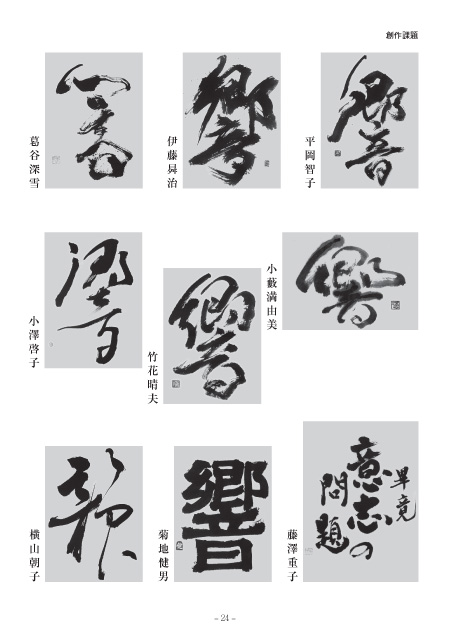 創作課題
平岡智子
響
伊藤曻治
響
葛谷深雪
響
小藪満由美
響
竹花晴夫
響
小澤啓子
響
藤澤重子
畢竟
意志の
問題
菊地健男
響
横山朝子
– 24 –